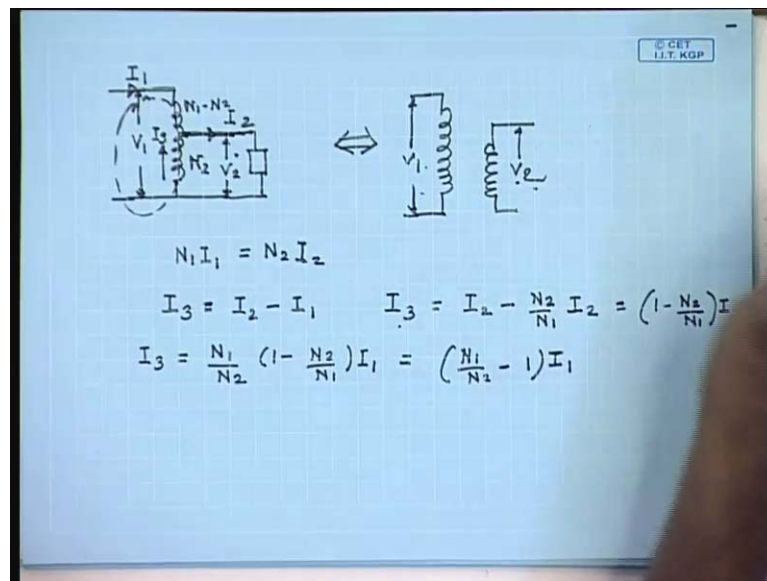 © CET
I.I.T. KGP
I₁
N₁-N₂
I₂
V₁
I₃
N₂
V₂
⇔
V₁
V₂
N₁I₁ = N₂I₂
I₃ = I₂ - I₁
I₃ = I₂ - N₂/N₁ I₂ = (1 - N₂/N₁)I
I₃ = N₁/N₂ (1 - N₂/N₁)I₁ = (N₁/N₂ - 1)I₁